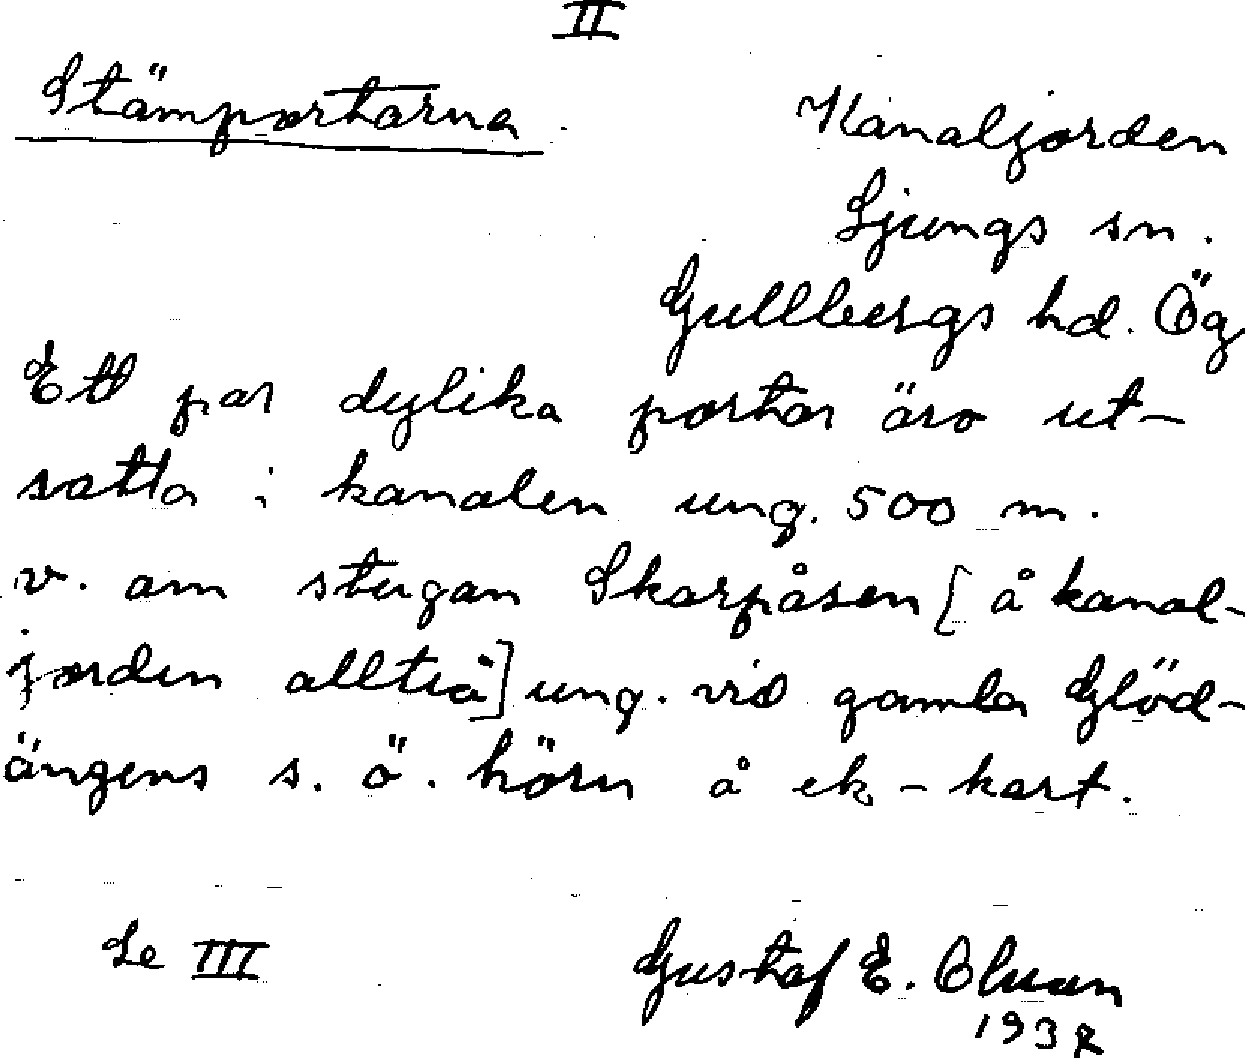 II
Stämportarna
Kanaljorden
Ljungs sn.
Gullbergs hd. Ög
Ett par dylika portar äro ut-
satta i kanalen ung. 500 m.
v. om stugan Skarpåsen [å kanal-
jorden alltså] ung. vid gamla Glöd-
ängens s. ö. hörn å ek-kart.
Se III
Gustaf E.